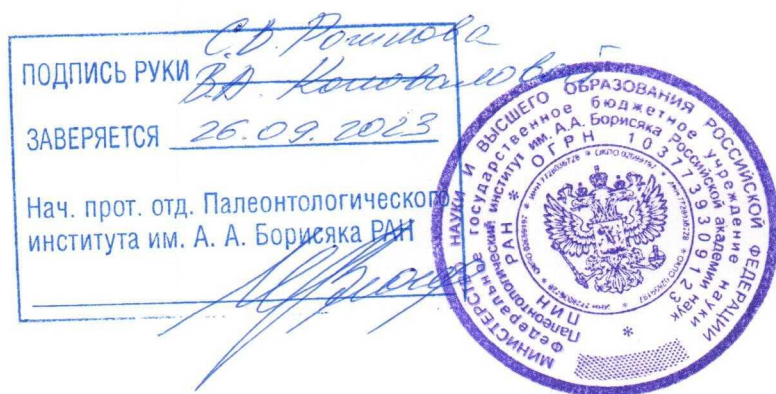 ПОДПИСЬ РУКИ С.В. Рожнова
В.А. Коноваловой
ЗАВЕРЯЕТСЯ 26.09.2023
Нач. прот. отд. Палеонтологического
института им. А. А. Борисяка РАН
МИНИСТЕРСТВО НАУКИ И ВЫСШЕГО ОБРАЗОВАНИЯ РОССИЙСКОЙ ФЕДЕРАЦИИ
Федеральное государственное бюджетное учреждение науки
Палеонтологический институт им. А.А. Борисяка Российской академии наук
ПИН РАН * ОГРН 1037739309123
*